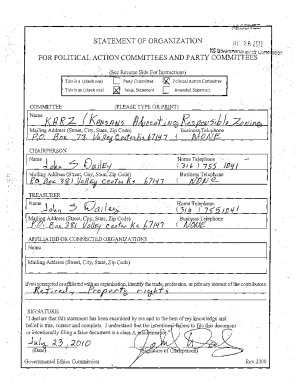 RECEIVED
28 2010
KS Governmental Ethics Commission
STATEMENT OF ORGANIZATION
FOR POLITICAL ACTION COMMITTEES AND PARTY COMMITTEES
(See Reverse Side For Instructions)
This is a (check one) Party Committee X Political Action Committee
This is an (check one) X Initial Statement Amended Statement
COMMITTEE (PLEASE TYPE OR PRINT)
Name
KARZ (Kansans Advocating Responsible Zoning
Mailing Address (Street, City, State, Zip Code) Business Telephone
P.O. Box 73 Valley Center Ks 67147 ( NONE
CHAIRPERSON
Name Home Telephone
John S Dailey (316) 755 1041
Mailing Address (Street, City, State, Zip Code) Business Telephone
P.O. Box 381 Valley Center Ks 67147 ( NONE
TREASURER
Name Home Telephone
John S Dailey (316) 755 1041
Mailing Address (Street, City, State, Zip Code) Business Telephone
P.O. Box 381 Valley Center Ks 67147 ( NONE
AFFILIATED OR CONNECTED ORGANIZATIONS
Name
Mailing Address (Street, City, State, Zip Code)
If not connected or affiliated with an organization, identify the trade, profession, or primary interest of the contributors.
Retired, Property rights
SIGNATURE:
"I declare that this statement has been examined by me and to the best of my knowledge and
belief is true, correct and complete. I understand that the intentional failure to file this document
or intentionally filing a false document is a class A misdemeanor."
July 23, 2010
(Date) Signature of Chairperson
Governmental Ethics Commission Rev.2000